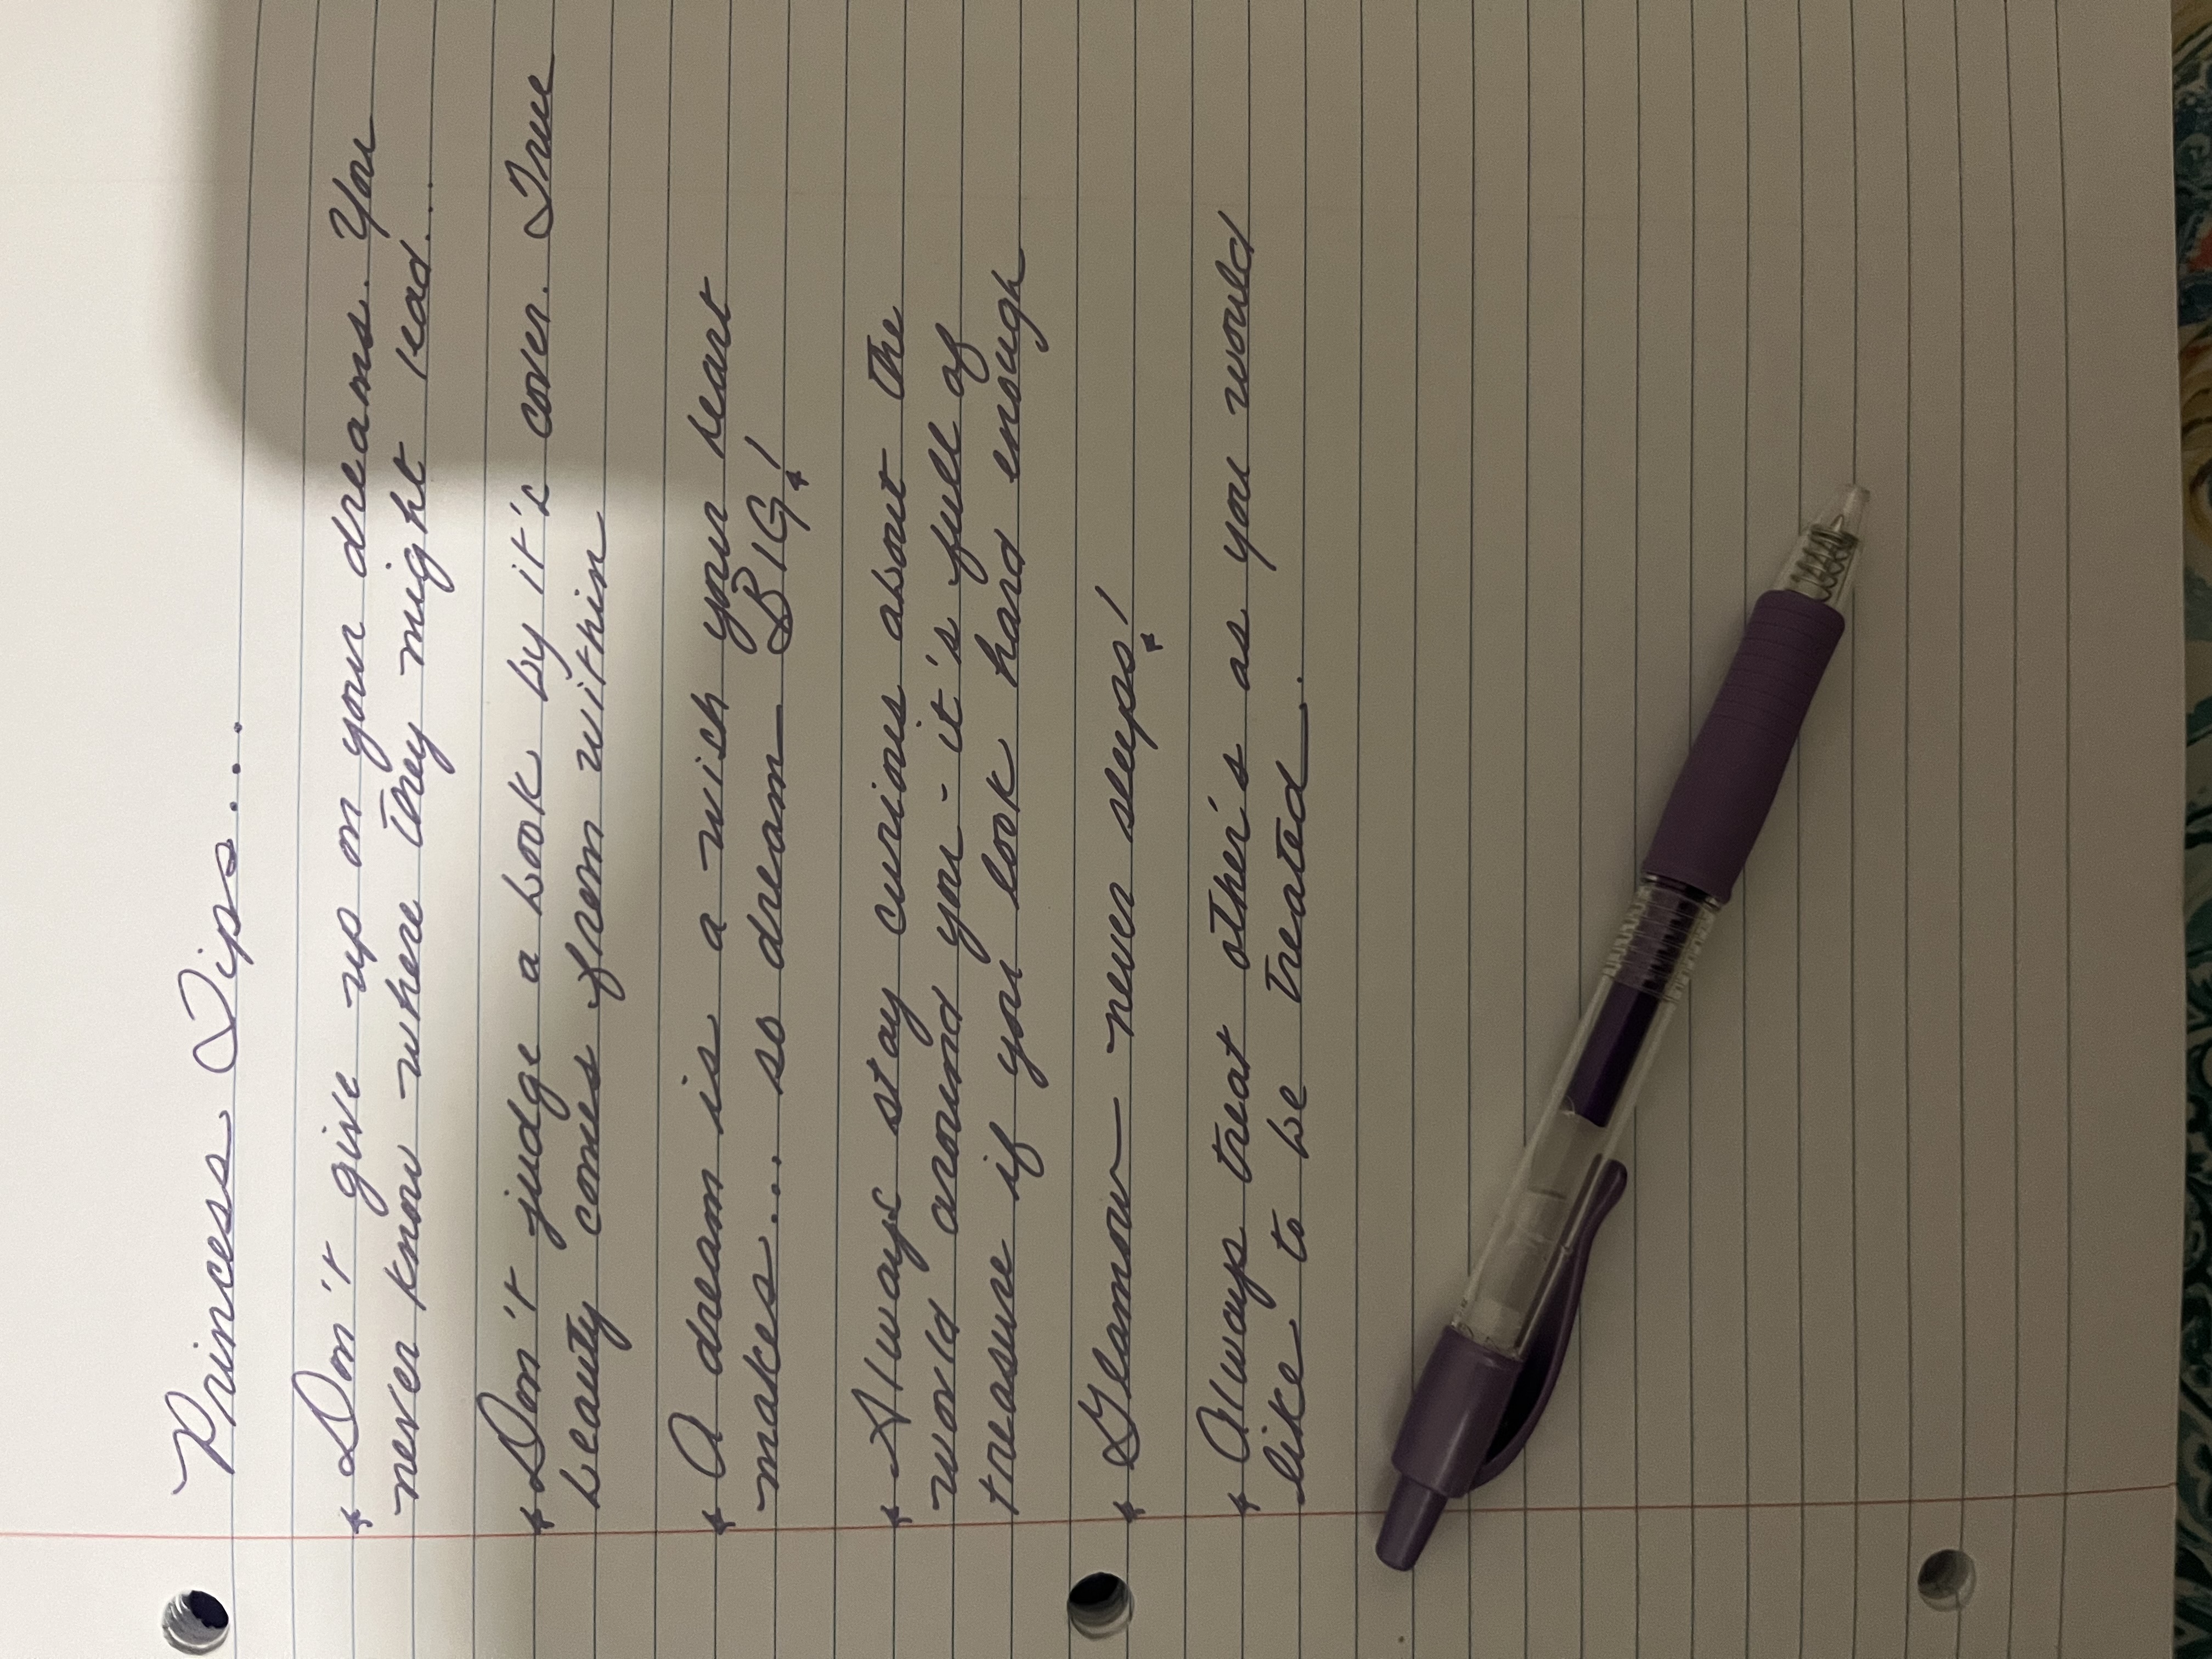 Princess Tips...
* Don't give up on your dreams. You
never know where they might lead...
* Don't judge a book by it's cover. True
beauty comes from within
* A dream is a wich your heart
makes... so dream BIG!
* Always stay curious about the
world around you - it's full of
treasure if you look hard enough
* Glamour never sleeps!
* Always treat other's as you would
like to be treated.